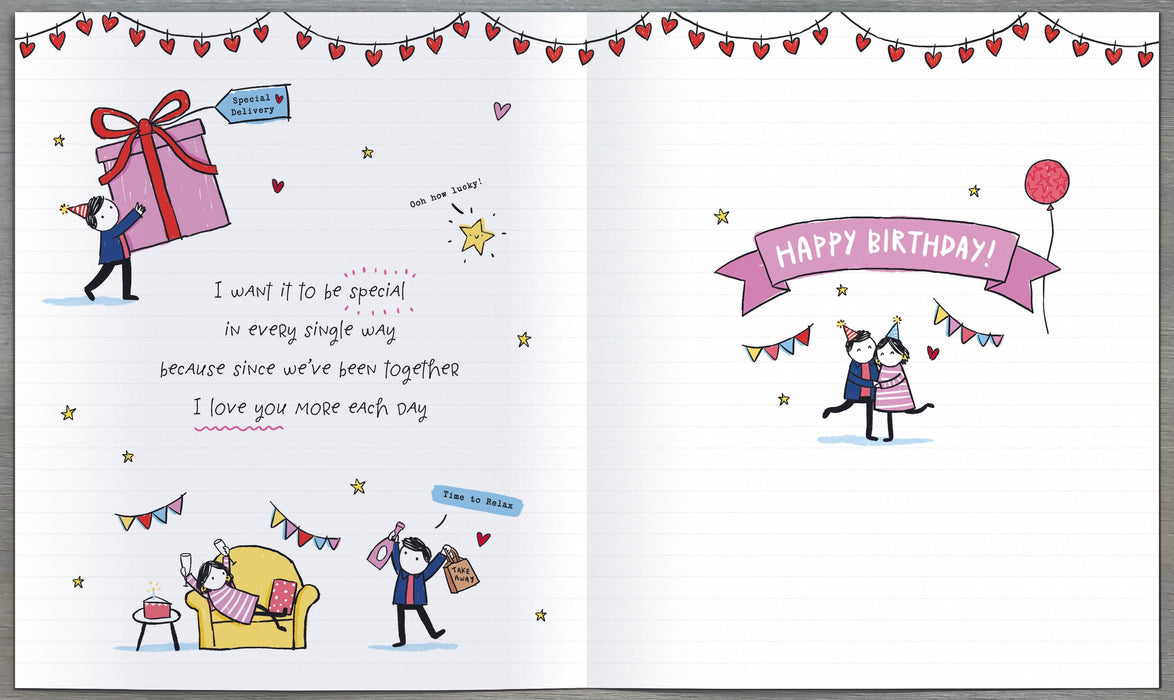 Special
Delivery
Ooh how lucky!
I want it to be special
in every single way
because since we've been together
I love you more each day
Time to Relax
TAKE
AWAY
HAPPY BIRTHDAY!